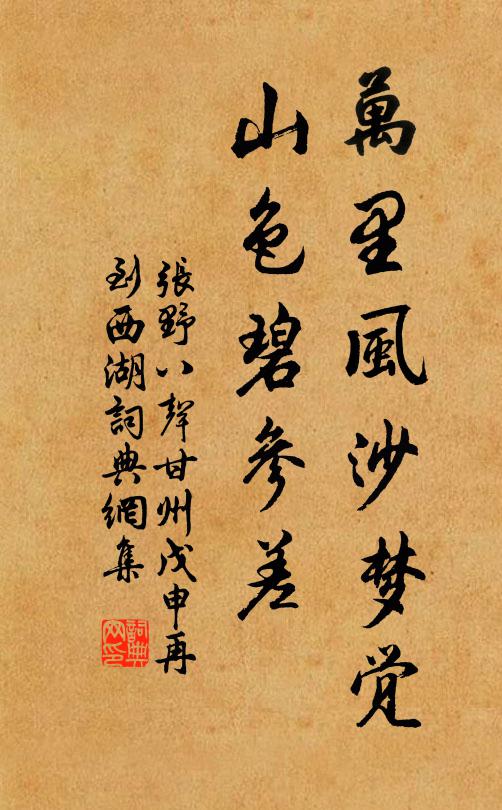 萬里風沙梦觉
山色碧參差
張野八聲甘州戊申再
到西湖詞典網集
詞典网印